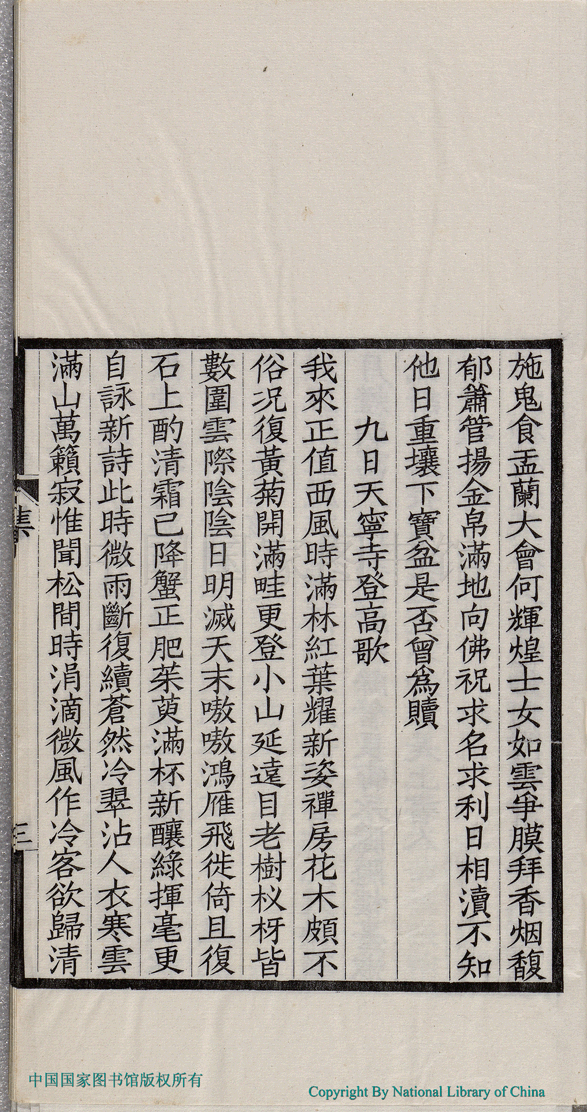 施鬼食盂蘭大會何輝煌士女如雲爭膜拜香烟馥
郁簫管揚金帛滿地向佛祝求名求利日相瀆不知
他日重壤下寶盆是否曾爲贖
九日天寧寺登高歌
我來正值西風時滿林紅葉耀新姿禪房花木頗不
俗况復黃菊開滿畦更登小山延遠目老樹杈枒皆
數圍雲際陰陰日明滅天末嗷嗷鴻雁飛徙倚且復
石上酌清霜已降蟹正肥茱萸滿杯新釀綠揮毫更
自詠新詩此時微雨斷復續蒼然冷翠沾人衣寒雲
滿山萬籟寂惟聞松間時涓滴微風作冷客欲歸清
集
三
中国国家图书馆版权所有
Copyright By National Library of China